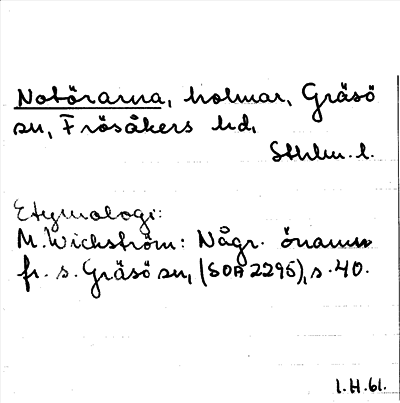 Notörarna, holmar, Gräsö
sn, Frösåkers hd,
Sthlm. l.
Etymologi:
M. Wickström: Någr. önamn
fr. s. Gräsö sn, (SOA 2295), s. 40.
I.H.61.